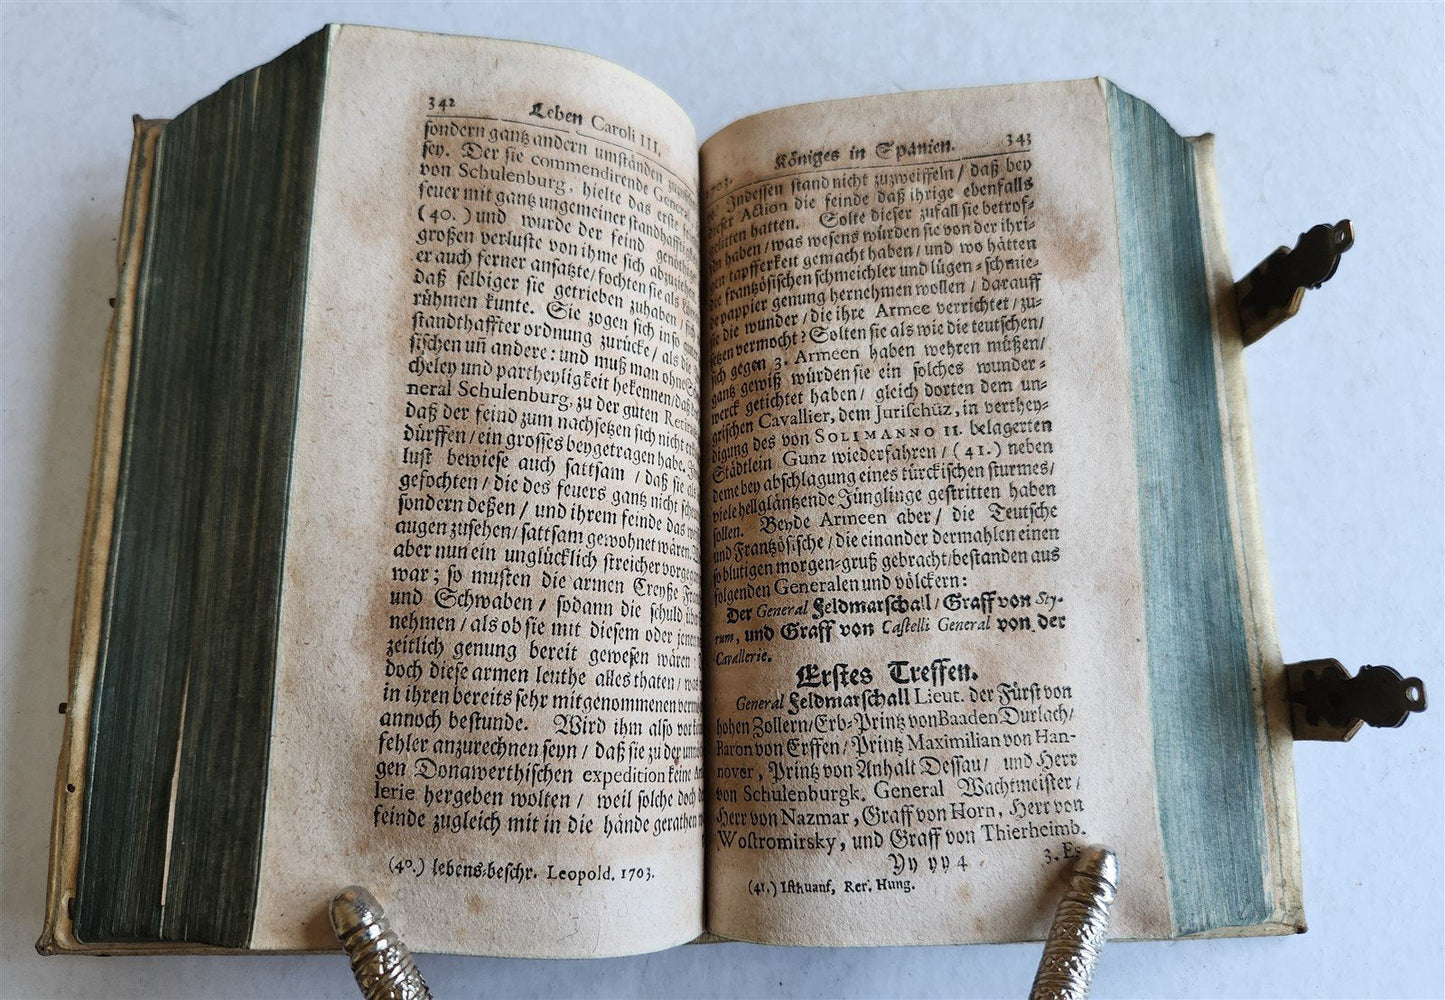 342
Leben Caroli III.
sondern gantz andern umständen
sey. Der sie commendirende General
von Schulenburg, hielte das erste
feuer mit gantz ungemeiner standhafftig
(40.) und wurde der feind genöthig
großen verluste von ihme sich abzuziehen
er auch ferner ansatzte / fochten sie als
daß selbiger sie getrieben zuhaben / sich
rühmen kunte. Sie zogen sich in so
standthaffter ordnung zurücke / als die
sischen uñ andere: und muß man ohne
cheley und partheyligkeit bekennen / daß
neral Schulenburg, zu der guten Retira
daß der feind zum nachsetzen sich nicht
dürffen / ein grosses beygetragen habe.
lust bewiese auch sattsam / daß sie
gefochten / die des feuers gantz nicht
sondern deßen / und ihrem feinde das
augen zusehen / sattsam gewohnet wären.
aber nun ein unglücklich streicher vorgegan
war; so musten die armen Creyße Fran
und Schwaben / sodann die schuld über
nehmen / als ob sie mit diesem oder jenen
zeitlich genung bereit gewesen wären
doch diese armen leuthe alles thaten / was
in ihren bereits sehr mitgenommenen
annoch bestunde. Wird ihm also vor
fehler anzurechnen seyn / daß sie zu der
gen Donawerthischen expedition keine
lerie hergeben wolten / weil solche doch
feinde zugleich mit in die hände gerathen
(40.) lebens-beschr. Leopold. 1703.
Königes in Spanien.
343
1703.
Indessen stand nicht zuzweiffeln / daß bey
dieser Action die feinde daß ihrige ebenfalls
gelitten hatten. Solte dieser zufall sie betrof-
fen haben / was wesens würden sie von der ihri-
gen tapfferkeit gemacht haben / und wo hätten
die frantzösischen schmeichler und lügen-schmie-
de pappier genung hernehmen wollen / darauff
sie die wunder / die ihre Armee verrichtet / zu-
setzen vermocht? Solten sie als wie die teutschen /
sich gegen 3. Armeen haben wehren müßen /
gantz gewiß würden sie ein solches wunder-
werck getichtet haben / gleich dorten dem un-
grischen Cavallier, dem Jurischüz, in verthey-
digung des von SOLIMANNO II. belagerten
Städtlein Gunz wiederfahren / (41.) neben
deme bey abschlagung eines türckischen sturmes /
viele hellgläntzende Jünglinge gestritten haben
sollen. Beyde Armeen aber / die Teutsche
und Frantzösische / die einander dermahlen einen
so blutigen morgen-gruß gebracht / bestanden aus
folgenden Generalen und völckern:
Der General Feldmarschall / Graff von Sty-
rum, und Graff von Castelli General von der
Cavallerie.
Erstes Treffen.
General Feldmarschall Lieut. der Fürst von
hohen Zollern / Erb-Printz von Baaden Durlach /
Baron von Erffen / Printz Maximilian von Han-
nover, Printz von Anhalt Dessau / und Herr
von Schulenburgk. General Wachtmeister /
Herr von Nazmar, Graff von Horn, Herr von
Wostromirsky, und Graff von Thierheimb.
Yy yy 4
3. Es
(41.) Isthuanf, Rer. Hung.